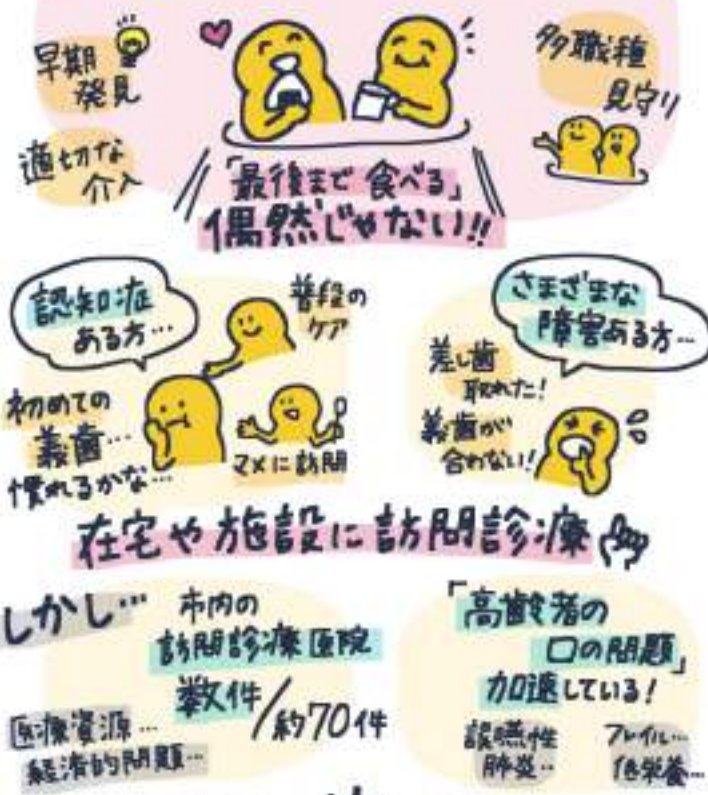 早期
発見
適切な
介入
多職種
見守り
「最後まで食べる」
偶然じゃない!!
認知症
ある方…
普段の
ケア
初めての
義歯…
慣れるかな…
マメに訪問
さまざまな
障害ある方…
差し歯
取れた!
義歯が
合わない!
在宅や施設に訪問診療
しかし…
市内の
訪問診療医院
数件/約70件
医療資源…
経済的問題…
「高齢者の
口の問題」
加速している!
誤嚥性
肺炎…
フレイル…
低栄養…